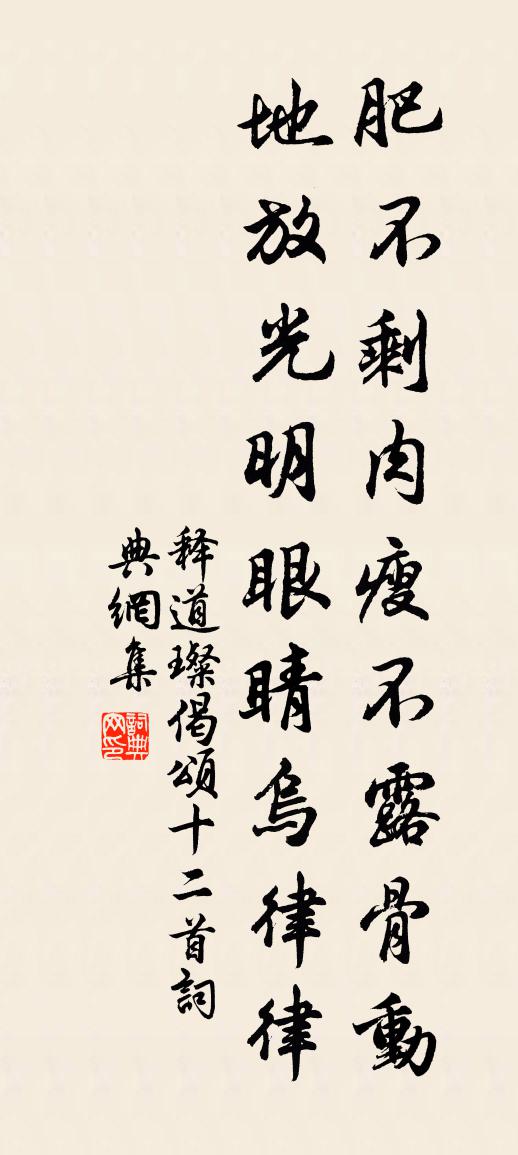 肥不剩肉瘦不露骨動
地放光明眼睛烏律律
释道璨偈頌十二首詞
典網集
詞典网印